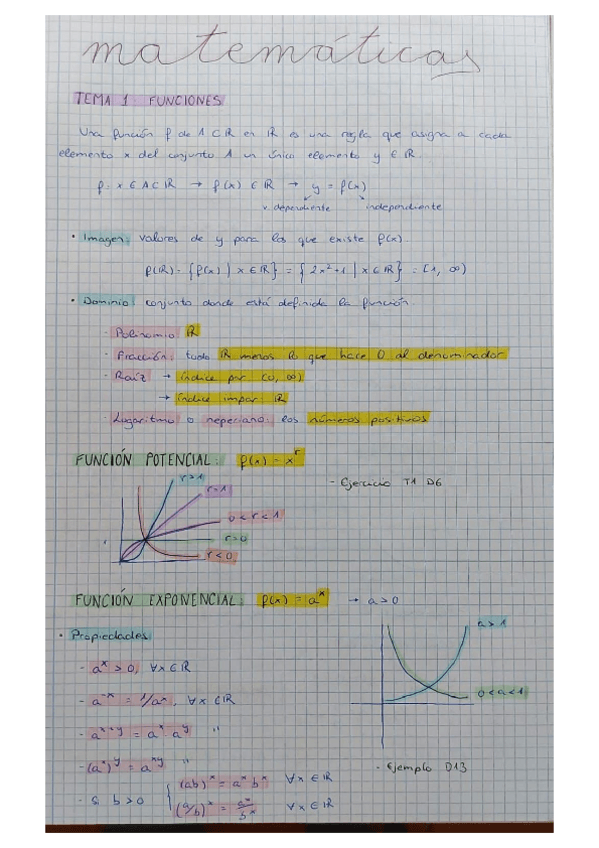 matemáticas
TEMA 1: FUNCIONES
Una función f de A ⊂ R en R es una regla que asigna a cada
elemento x del conjunto A un único elemento y ∈ R.
f: x ∈ A ⊂ R → f(x) ∈ R → y = f(x)
v. dependiente independiente
· Imagen: valores de y para los que existe f(x).
f(R) = {f(x) | x ∈ R} = {2x²+1 | x ∈ R} = [1, ∞)
· Dominio: conjunto donde está definida la función.
- Polinomio: R
- Fracción: todo R menos lo que hace 0 al denominador
- Raíz → índice par: (0, ∞)
→ índice impar: R
- Logaritmo o neperiano: los números positivos
FUNCIÓN POTENCIAL: f(x) = x^r
r>1
r=1
0<r<1
r=0
r<0
- Ejercicio T1 D6
FUNCIÓN EXPONENCIAL: f(x) = a^x → a>0
· Propiedades:
- a^x > 0, ∀x ∈ R
- a^-x = 1/a^x, ∀x ∈ R
- a^x+y = a^x · a^y "
- (a^x)^y = a^xy "
- Si b>0 { (ab)^x = a^x b^x ∀x ∈ R
(a/b)^x = a^x/b^x ∀x ∈ R
a>1
0<a<1
- Ejemplo D13